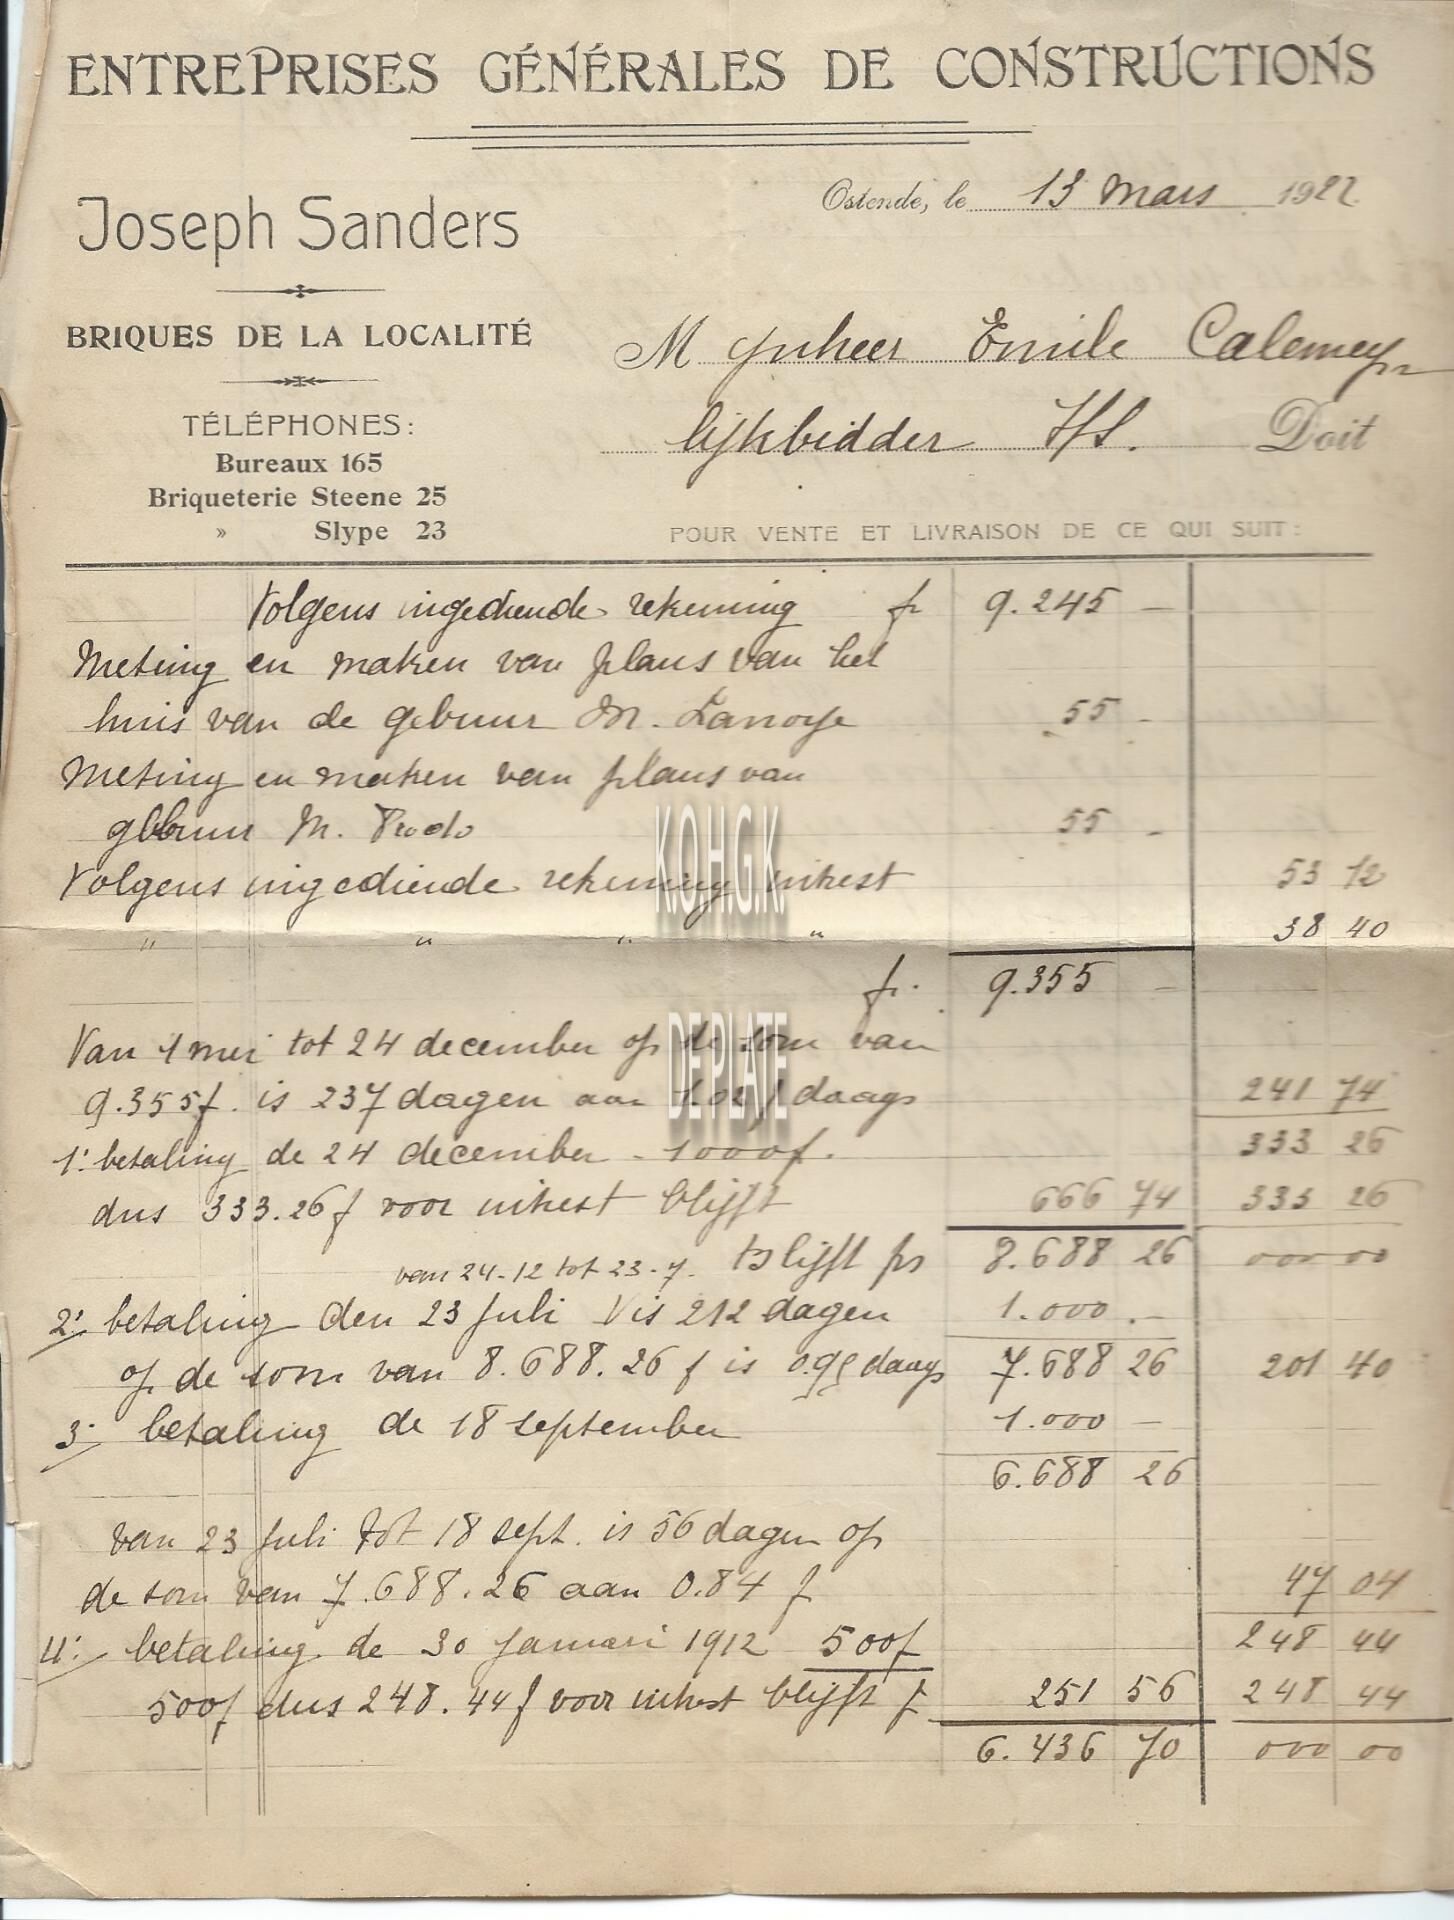 ENTREPRISES GÉNÉRALES DE CONSTRUCTIONS
Joseph Sanders
BRIQUES DE LA LOCALITÉ
TÉLÉPHONES:
Bureaux 165
Briqueterie Steene 25
» Slype 23
Ostende, le 13 Mars 1922
Mynheer Emile Calemeyn
lijkbidder Doit
POUR VENTE ET LIVRAISON DE CE QUI SUIT:
Volgens ingediende rekening fr 9.245 –
Meting en maken van plans van het
huis van de gebuur M. Lanoye 55 –
Meting en maken van plans van
gebuur M. 55 –
Volgens ingediende rekening intrest 53 12
" " " " 38 40
fr. 9.355 –
Van 1 mei tot 24 december op de som van
9.355f. is 237 dagen aan 1.02 f daags 241 74
1: betaling de 24 december - 1000f. 333 26
dus 333.26 f voor intrest blijft 666 74 333 26
van 24-12 tot 23-7. Blijft frs 8.688 26 000 00
2: betaling den 23 Juli is 212 dagen 1.000 . –
op de som van 8.688.26 f is 0.95 daags 7.688 26 201 40
3: betaling de 18 september 1.000 –
6.688 26
van 23 Juli tot 18 sept. is 56 dagen op
de som van 7.688.26 aan 0.84 f 47 04
4: betaling de 30 Januari 1912 500f 248 44
500f dus 248.44 f voor intrest blijft f 251 56 248 44
6.436 70 000 00
K.O.H.G.K.
DE PLATE